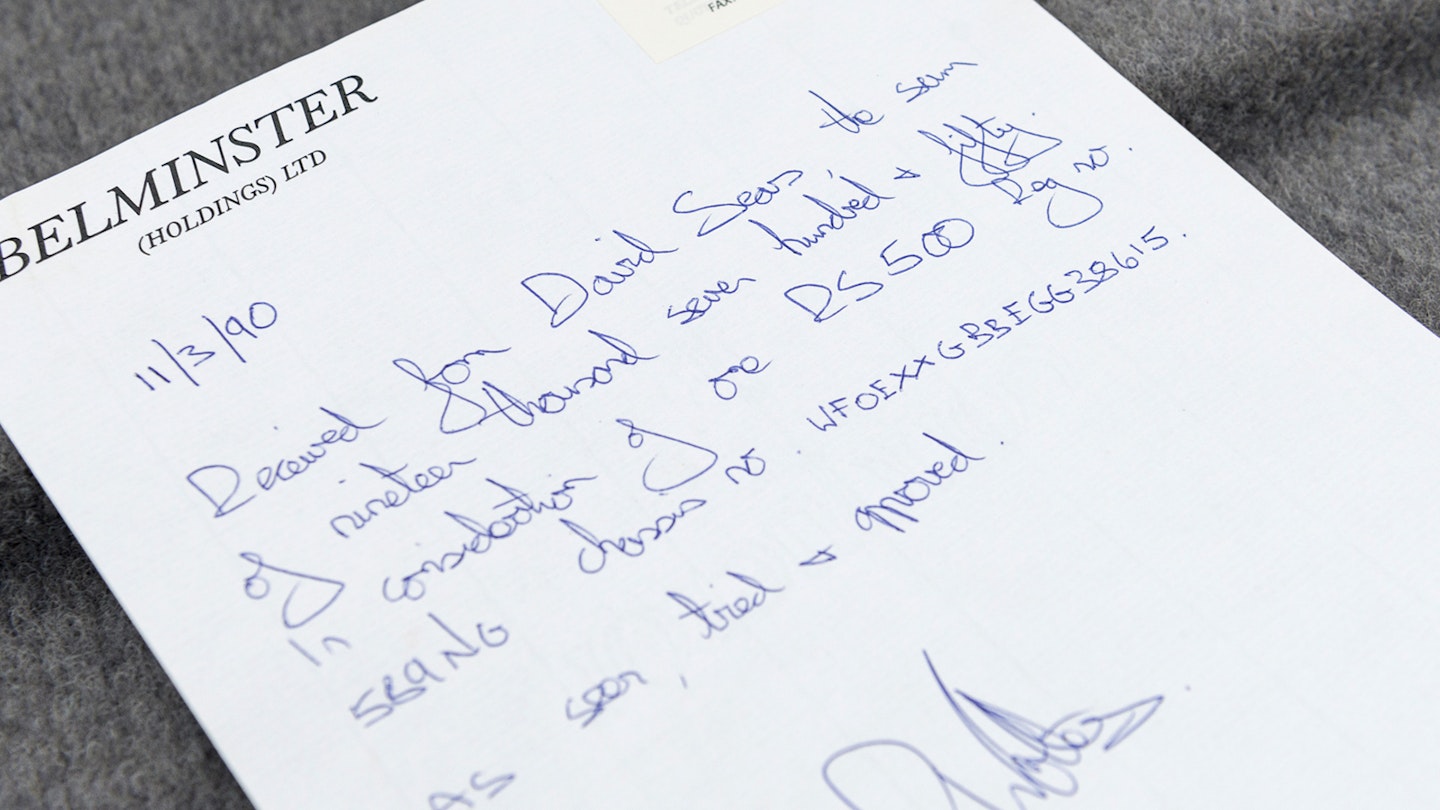 FAX:
BELMINSTER
(HOLDINGS) LTD
11/3/90
Received from David Sears the sum
of nineteen thousand seven hundred & fifty.
In consideration of one RS500 Reg no.
chassis no. WFOEXXGBBEGG38615.
As seen, tried & approved.